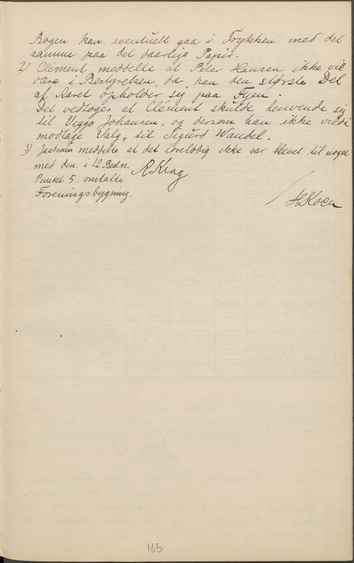 Bogen kan eventuelt gaa i Trykken med det
samme paa det daarlige Papir.
2) Clement meddelte at Peter Hansen ikke vil
være i Bestyrelsen, da han den største Del
af Aaret opholder sig paa Fyen.
Det vedtoges at Clement skulde henvende sig
til Viggo Johansen, og dersom han ikke vilde
modtage Valg, til Sigurd Wandel.
3) meddelte at det foreløbig ikke var blevet til noget
med den.
Punkt 5. omtalte
Foreningsbygning.
165